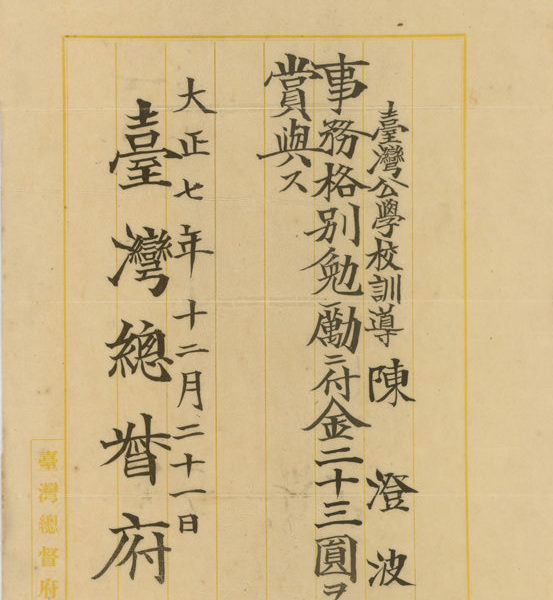 臺灣公學校訓導 陳澄波
事務格別勉勵ニ付金二十三圓ヲ
賞與ス
大正七年十二月二十一日
臺灣總督府
臺灣總督府